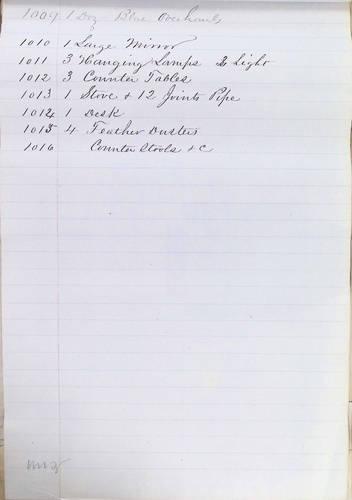 1009 1 Doz Blue Overhauls
1010 1 Large Mirror
1011 3 Hanging Lamps 2 Light
1012 3 Counter Tables
1013 1 Stove & 12 Joints Pipe
1014 1 Desk
1015 4 Feather Dusters
1016 Counter Stools & C